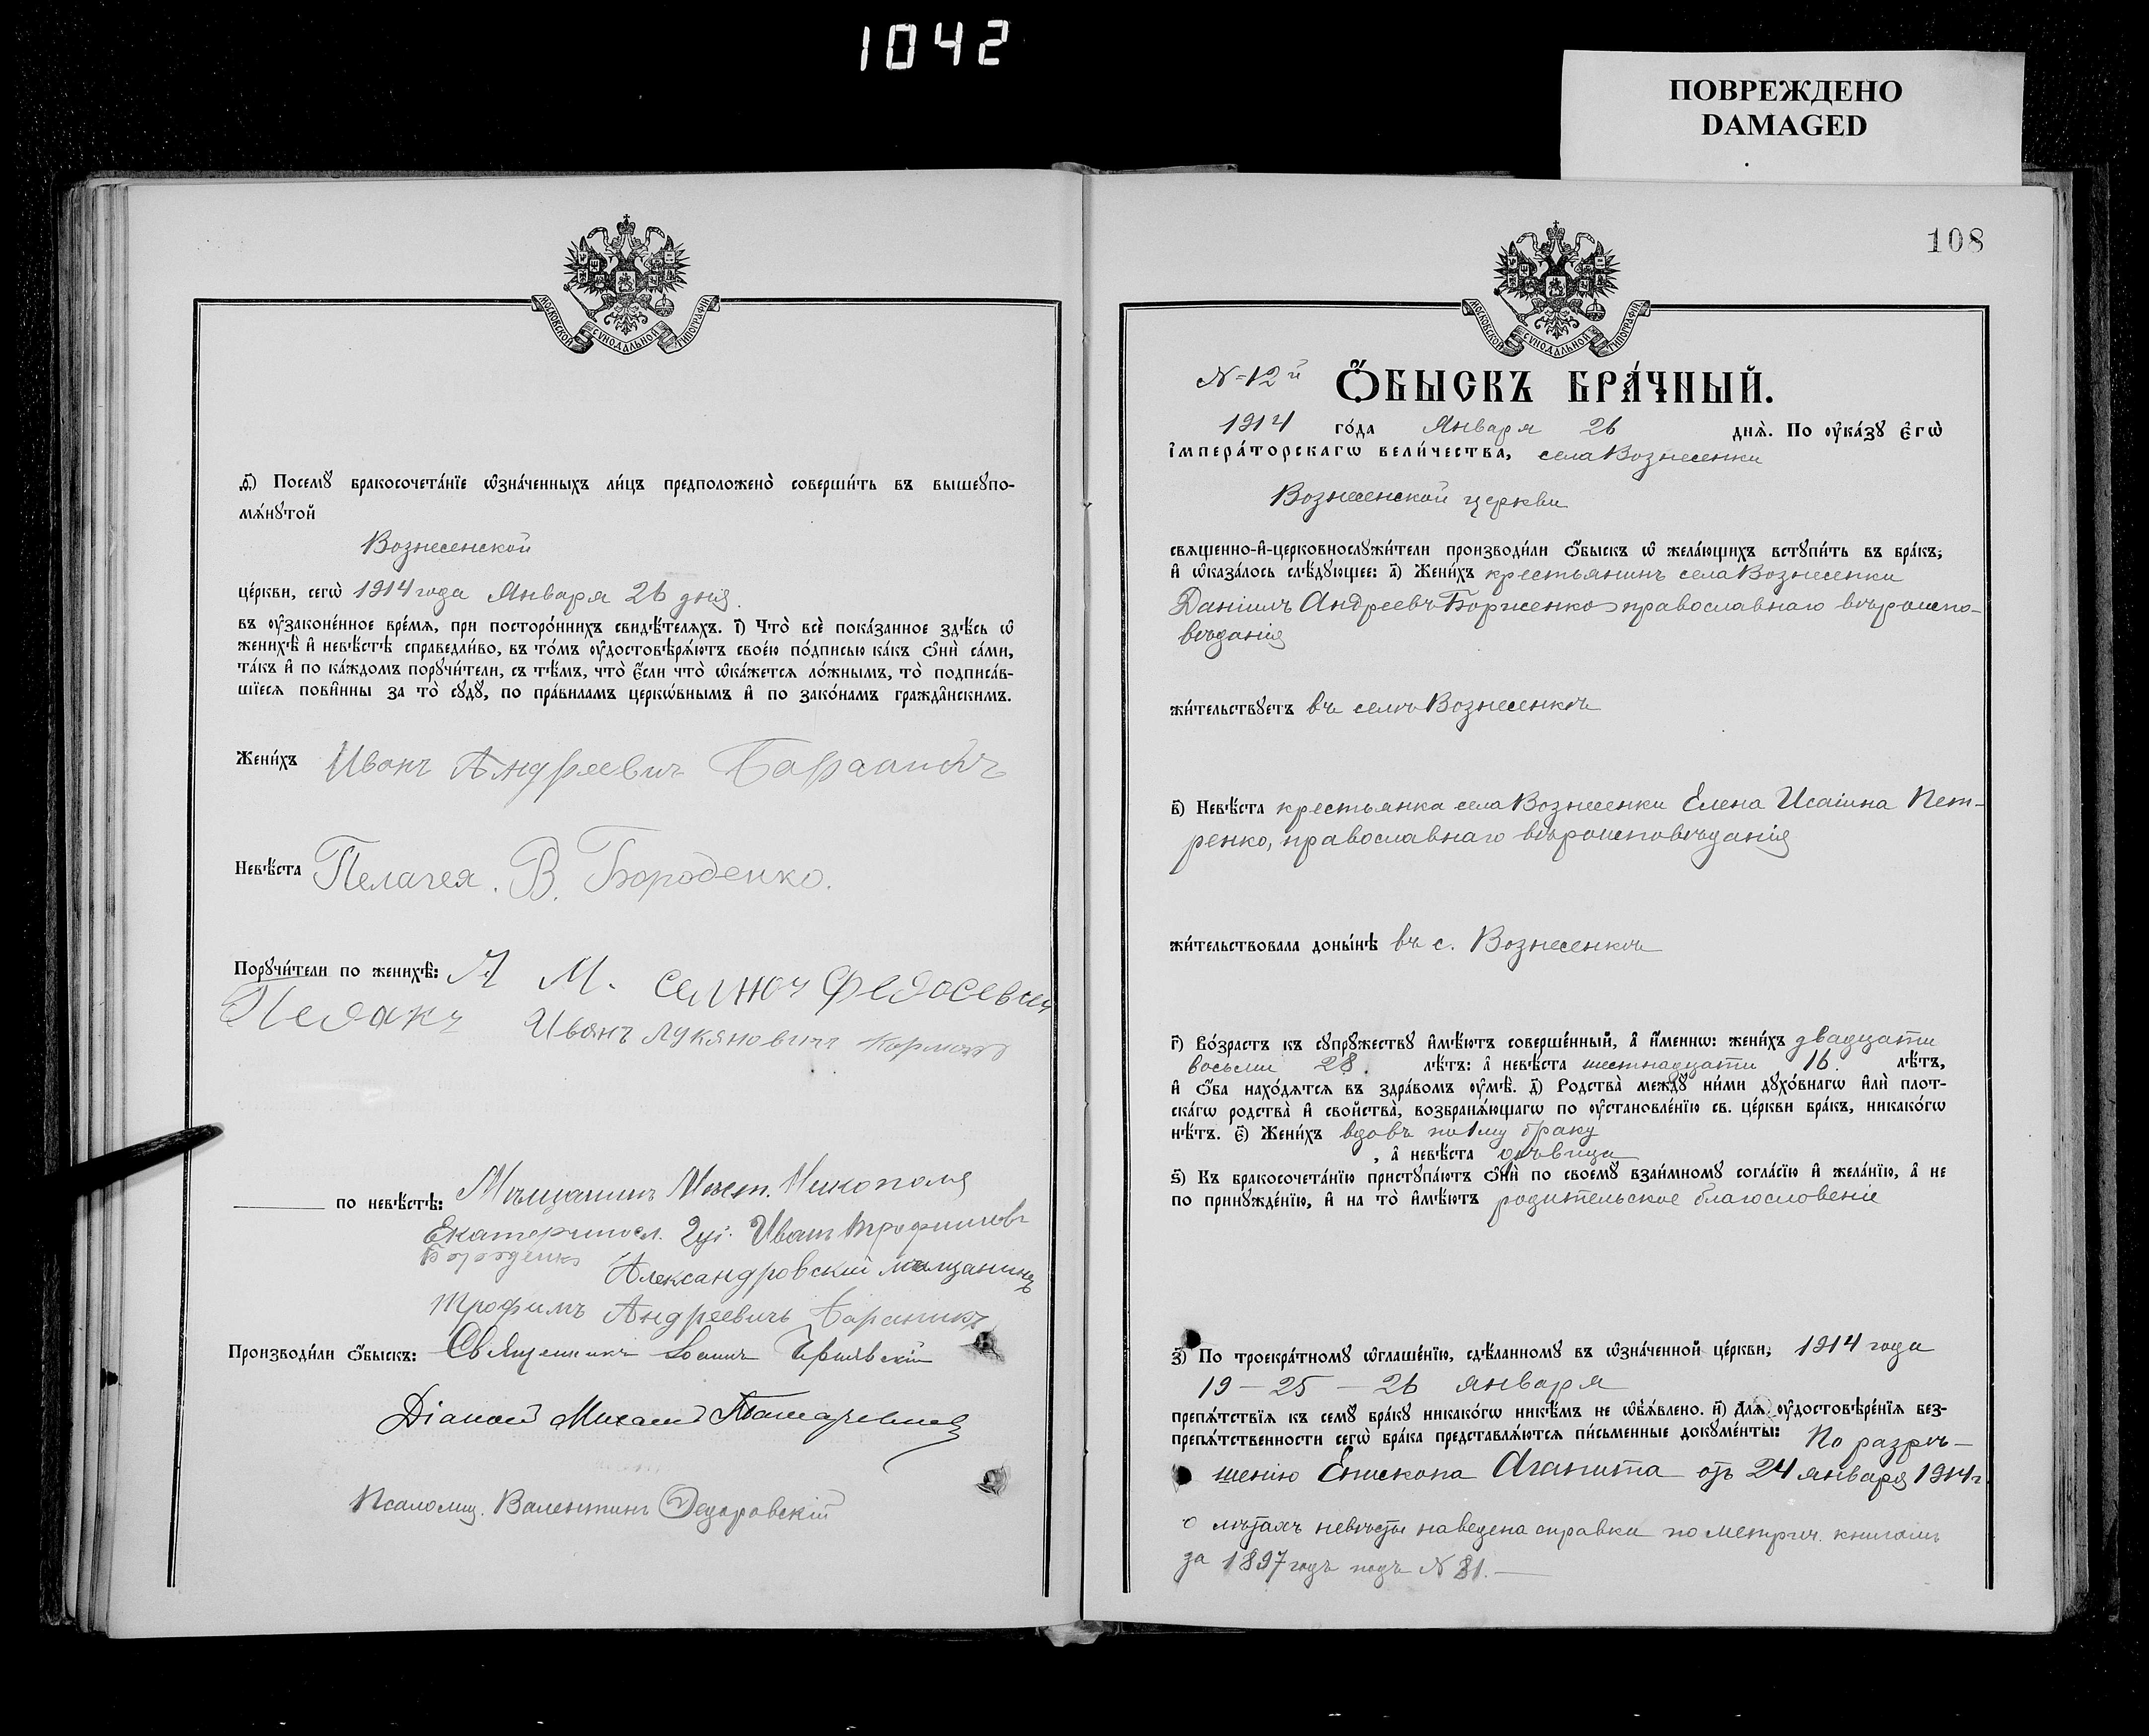 1042
ПОВРЕЖДЕНО
DAMAGED
МОСКОВСКОЙ СѴНОДАЛЬНОЙ ТИПОГРАФІИ
д҃і) Посемꙋ̀ бракосочета́нїе ѡ҆зна́ченныхъ ли́цъ предположено̀ соверши́ть въ вышеꙋпо-
мѧ́нꙋтой
Вознесенской
це́ркви, сегѡ̀ 1914 года Января 26 дня
въ ᲂу҆зако́ненное вре́мѧ, при посторо́ннихъ свидѣ́телѧхъ. і҃) Что̀ всѐ пока́занное здѣ́сь ѡ҆
женихѣ̀ и҆ невѣ́стѣ справедли́во, въ то́мъ ᲂу҆достовѣрѧ́ютъ свое́ю по́дписью ка́къ ѻ҆нѝ са́ми,
та́къ и҆ по ка́ждомъ порꙋчи́тели, съ тѣ́мъ, что̀ є҆́сли что̀ ѡ҆ка́жетсѧ ло́жнымъ, то̀ подписа́в-
шїесѧ пови́нны за то̀ сꙋдꙋ̀, по пра́виламъ церкѡ́внымъ и҆ по зако́намъ гражда́нскимъ.
Жени́хъ Иванъ Андреевич
Невѣ́ста Пелагея. В. Бороденко.
Порꙋчи́тели по женихѣ̀: А М. Федосевич
Иванъ Лукяновичъ
по невѣ́стѣ: Мѣщанинъ Мѣст. Никополя
Екатериносл. губ. Иванъ Трофимовъ
Бороденко Александровский мѣщанинъ
Трофимъ Андреевичъ Бараникъ
Производи́ли ѻ҆́быскъ: Священникъ Іоаннъ
Діаконъ Михаилъ
Псаломщ. Валентинъ Федоровскій
108
МОСКОВСКОЙ СѴНОДАЛЬНОЙ ТИПОГРАФІИ
№ 12й Ѻ҆́БЫСКЪ БРА́ЧНЫЙ.
1914 го́да Января 26 днѧ̀. По ᲂу҆ка́зꙋ є҆гѡ̀
і҆мпера́торскагѡ вели́чества, села Вознесенки
Вознесенской церкви
свѧщенно-и҆-церковнослꙋжи́тели производи́ли ѻ҆́быскъ ѡ҆ жела́ющихъ встꙋпи́ть въ бра́къ,
и҆ ѡ҆каза́лось слѣ́дꙋющее: а҃) Жени́хъ крестьянинъ села Вознесенки
Даніилъ Андреевъ Борженко православнаго вѣроиспо-
вѣданія
жи́тельствꙋетъ въ селѣ Вознесенкѣ
в҃) Невѣ́ста крестьянка села Вознесенки Елена Исаіина Пет-
ренко, православнаго вѣроисповѣданія
жи́тельствовала доны́нѣ въ с. Вознесенкѣ
г҃) Во́зрастъ къ сꙋпрꙋ́жествꙋ и҆мѣ́ютъ соверше́нный, а҆ и҆́меннѡ: жени́хъ двадцати
восьми 28. лѣ́тъ: а҆ невѣ́ста шестнадцати 16. лѣ́тъ,
и҆ ѻ҆́ба нахо́дѧтсѧ въ здра́вомъ ᲂу҆мѣ̀. д҃) Родства̀ междꙋ̀ ни́ми дꙋхо́внагѡ и҆лѝ плот-
ска́гѡ родства̀ и҆ сво́йства, возбранѧ́ющагѡ по ᲂу҆становле́нїю св. це́ркви бра́къ, никако́гѡ
нѣ́тъ. є҃) Жени́хъ вдовъ по 1му браку
, а҆ невѣ́ста дѣвица
ѕ҃) Къ бракосочета́нїю пристꙋпа́ютъ ѻ҆нѝ по своемꙋ̀ взаи́мномꙋ согла́сїю и҆ жела́нїю, а҆ не
по принꙋжде́нїю, и҆ на то̀ и҆мѣ́ютъ родительское благословеніе
з҃) По троекра́тномꙋ ѡ҆глаше́нїю, сдѣ́ланномꙋ въ ѡ҆зна́ченной це́ркви, 1914 года
19 – 25 – 26 января
препѧ́тствїѧ къ семꙋ̀ бра́кꙋ никако́гѡ никѣ́мъ не ѡ҆б̾ѧ́влено. и҃) Длѧ̀ ᲂу҆достовѣре́нїѧ без-
препѧ́тственности сегѡ̀ бра́ка представлѧ́ютсѧ пи́сьменные докꙋме́нты: По разрѣ-
шенію Епископа Агапита отъ 24 января 1914 г.
о лѣтахъ невѣсты наведена справка по метрич. книгамъ
за 1897 годъ подъ № 81. —